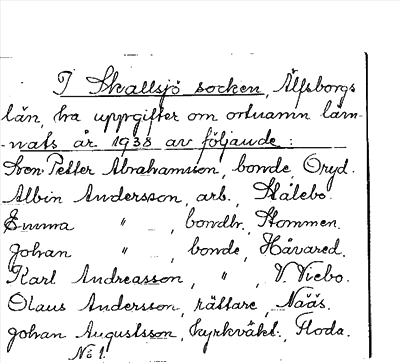 I Skallsjö socken, Älfsborgs
län, ha uppgifter om ortnamn läm-
-nats år 1938 av följande:
Sven Petter Abrahamsson, bonde, Öryd.
Albin Andersson, arb., Stålebo.
Emma " , bondhr., Stommen.
Johan " , bonde, Håvared.
Karl Andreasson, " , V. Viebo.
Olaus Andersson, rättare, Nääs.
Johan Augustsson, kyrkväkt., Floda.
No 1.